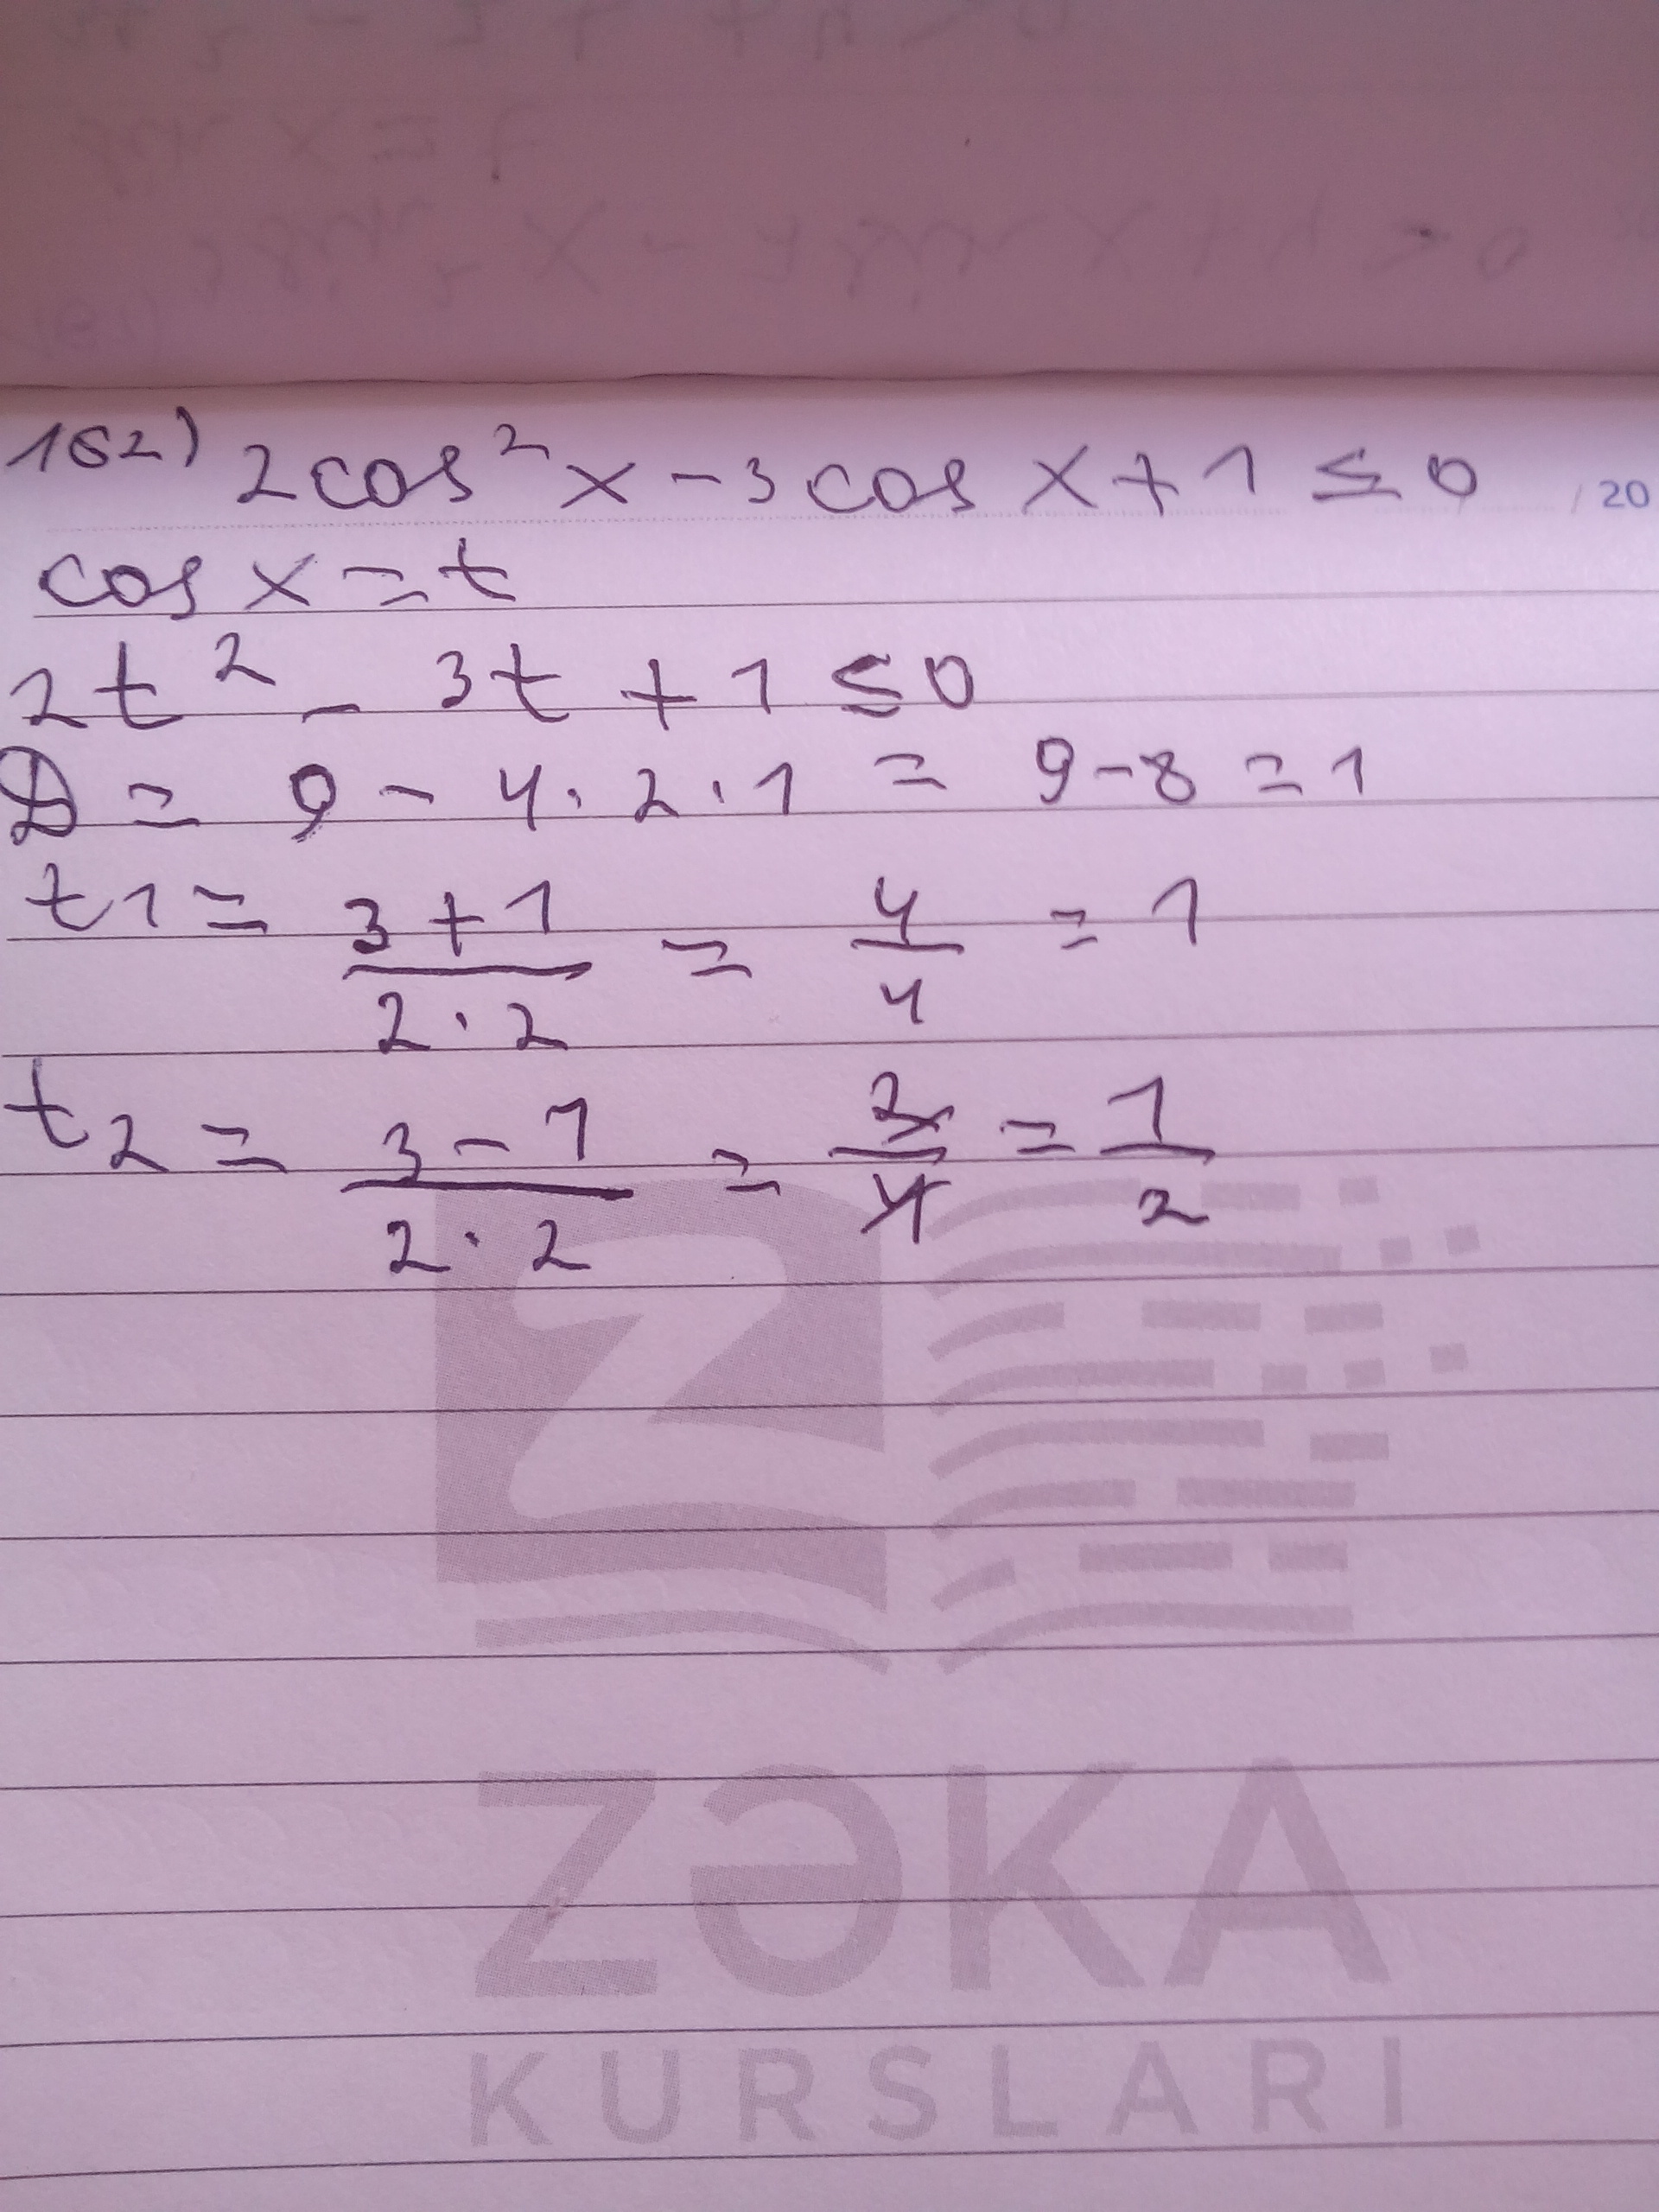 162) 2cos²x-3cos x+1≤0
/20
cos x=t
2t² - 3t + 1 ≤0
D = 9 - 4·2·1 = 9-8=1
t1= 3+1/2·2 = 4/4 = 1
t2 = 3-1/2·2 = 2/4 = 1/2
ZƏKA
KURSLARI